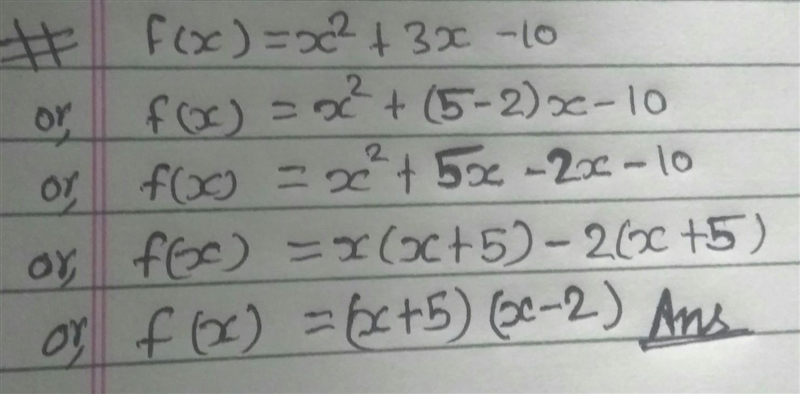 # f(x) = x² + 3x - 10
or, f(x) = x² + (5-2)x - 10
or, f(x) = x² + 5x - 2x - 10
or, f(x) = x(x+5) - 2(x+5)
or, f(x) = (x+5)(x-2) Ans